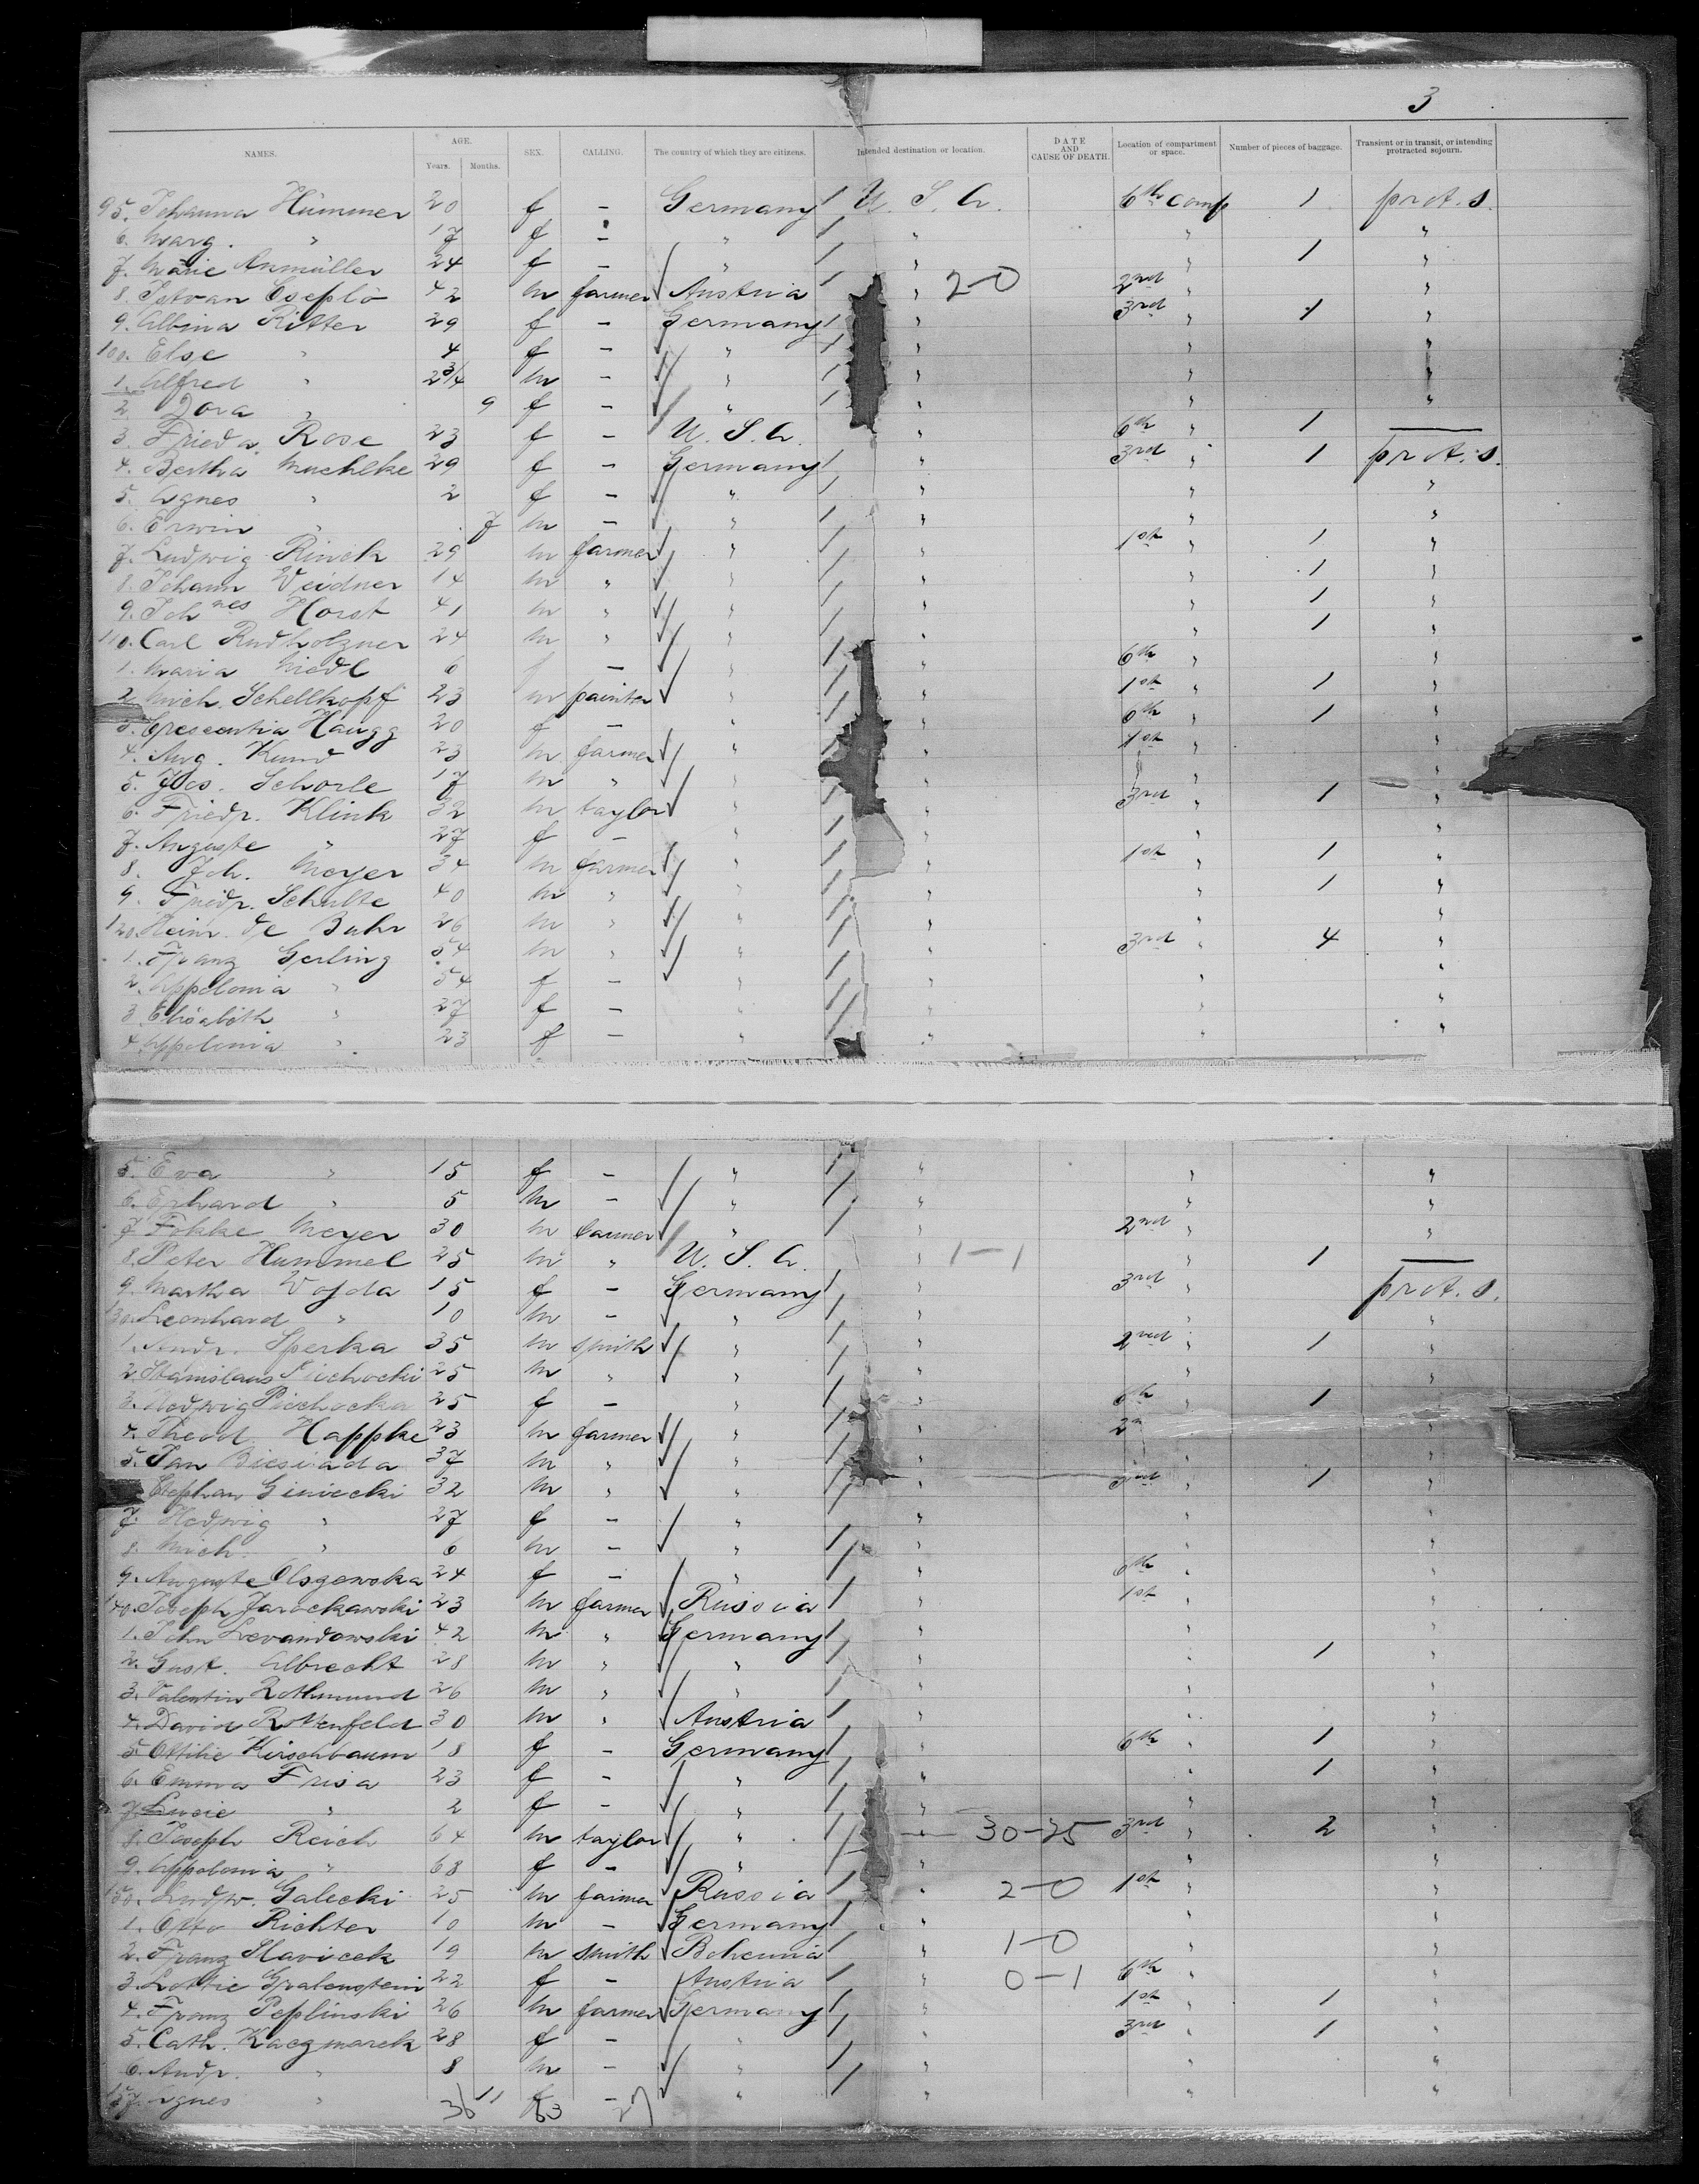 3
NAMES. AGE. Years. Months. SEX. CALLING. The country of which they are citizens. Intended destination or location. DATE AND CAUSE OF DEATH. Location of compartment or space. Number of pieces of baggage. Transient or in transit, or intending protracted sojourn.
95. Johanna Hümmer 20 f - Germany / U. S. A. 6th comp 1 prot. s.
6. Marg. " 17 f - " / " " "
7. Marie Anmüller 24 f - " / " " 1 "
8. Istvan Cseplö 42 m farmer Austria / " 2-0 2nd " "
9. Albina Ritter 29 f - Germany / " 3rd " 1 "
100. Else " 4 f - " / " " "
1. Alfred " 2 3/4 m - " / " " "
2 Dora " 9 f - " / " " "
3. Frieda Rose 23 f - U. S. A. " 6th " 1 —
4. Bertha Muehlke 29 f - Germany / " 3rd " 1 prot. s.
5. Agnes " 2 f - " / " " "
6. Erwin " 7 m - " / " " "
7. Ludwig Rinck 29 m farmer " / " 1st " 1 "
8. Johann Weidner 14 m " " / " " 1 "
9. Johnes Horst 41 m " " / " " 1 "
110. Carl Rudholzner 24 m " " / " " 1 "
1. Maria Niedl 6 f - " / " 6th " "
2. Mich. Schellkopf 23 m painter " / " 1st " 1 "
3. Crescentia Haugg 20 f - " / " 6th " 1 "
4. Aug. Kund 23 m farmer " / " 1st " "
5. Jos. Schorle 17 m " " / " " "
6. Friedr. Klink 32 m taylor " / " 3rd " 1 "
7. Auguste " 27 f - " / " " "
8. Joh. Meyer 34 m farmer " / " 1st " 1 "
9. Friedr. Schulte 40 m " " / " " 1 "
120. Heinr. de Buhr 26 m " " / " " "
1. Franz Gerling 54 m " " / " 3rd " 4 "
2. Appolonia " 54 f - " / " " "
3. Elisabeth " 27 f - " / " " "
4. Appolonia " 23 f - " / " " "
5. Eva " 15 f - " / " " "
6. Erhard " 5 m - " / " " "
7 Fokke Meyer 30 m farmer " / " 2nd " "
8. Peter Hummel 25 m " U. S. A. " 1-1 " 1 —
9. Martha Wojda 15 f - Germany / " 3rd " prot. s.
130. Leonhard " 10 m - " / " " "
1. Andr. Sperka 35 m smith " / " 2nd " 1 "
2. Stanislaus Piechocki 25 m " " / " " "
3. Hedwig Piechocka 25 f - " / " 6th " 1 "
4. Theod. Happke 23 m farmer " / " 2n "
5. Jan Biesiada 37 m " " / " " "
Stephan Giniecki 32 m " " / " 3rd " 1 "
7. Hedwig " 27 f - " / " " "
8. Mich. " 6 m - " / " " "
9. Auguste Olszewska 24 f - " / " 6th " "
140. Joseph Jarockawski 23 m farmer Russia / " 1st " "
1. John Levandowski 42 m " Germany / " " "
2. Gust. Albrecht 28 m " " / " " 1 "
3. Valentin Rothmund 26 m " " / " " "
4. David Rottenfeld 30 m " Austria / " " "
5. Ottilie Kirschbaum 18 f - Germany / " 6th " 1 "
6. Emma Frisa 23 f - " / " " 1 "
7. Lucie " 2 f - " / " " "
8. Joseph Reich 64 m taylor " / " 30-25 3rd " 2 "
9. Appolonia " 68 f - " / " " "
150. Ludw. Galecki 25 m farmer Russia / " 2-0 1st " "
1. Otto Richter 10 m - Germany / " " "
2. Franz Slavicek 19 m smith Bohemia / " 1-0 " "
3. Lottie Gralenstein 22 f - Austria / " 0-1 6th " "
4. Franz Peplinski 26 m farmer Germany / " 1st " 1 "
5. Cath. Kaczmarek 28 f - " / " 3rd " 1 "
6. Andr. " 8 m - " / " " "
157. Agnes " 11 f - " / " " "
36 63 27